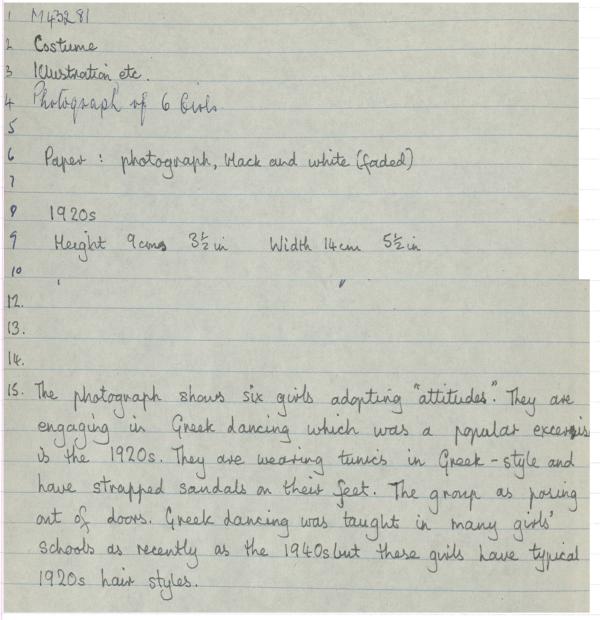 1 M43281
2 Costume
3 Illustration etc.
4 Photograph of 6 Girls
5
6 Paper : photograph, black and white (faded)
7
8 1920s
9 Height 9cms 3½in Width 14cm 5½in
10
12.
13.
14.
15. The photograph shows six girls adopting "attitudes". They are
engaging in Greek dancing which was a popular excersis
is the 1920s. They are wearing tunics in Greek-style and
have strapped sandals on their feet. The group as posing
out of doors. Greek dancing was taught in many girls'
schools as recently as the 1940s but these girls have typical
1920s hair styles.